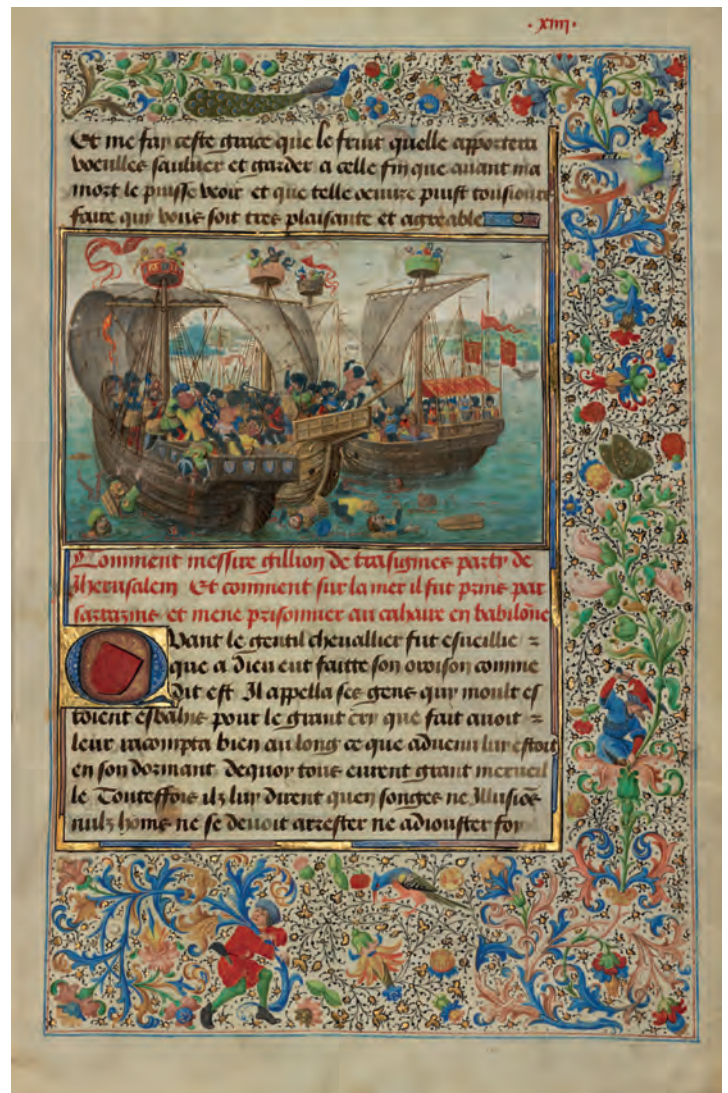 · xiiii ·
Et me fay ceste grace que le fruit quelle apportera
voeulles sauluer et garder a celle fin que auant ma
mort le puisse veoir et que telle oeuure puist tousiours
faire quy vous soit tres plaisante et agreable
Comment messire gillion de trasignies party de
Jherusalem Et comment sur la mer il fut prins par
sarrazins et mene prisonnier au cahaire en babilone
Quant le gentil cheuallier fut esueillie ⁊
que a dieu eut faitte son oroison comme
dit est Il appella ses gens quy moult es
toient esbahis pour le grant cry que fait auoit ⁊
leur racompta bien au long ce que aduenu luy estoit
en son dormant dequoy tous eurent grant merueil
le Touteffois ilz luy dirent quen songes ne Illusiõs
nulz homs ne se deuoit arrester ne adiouster foy